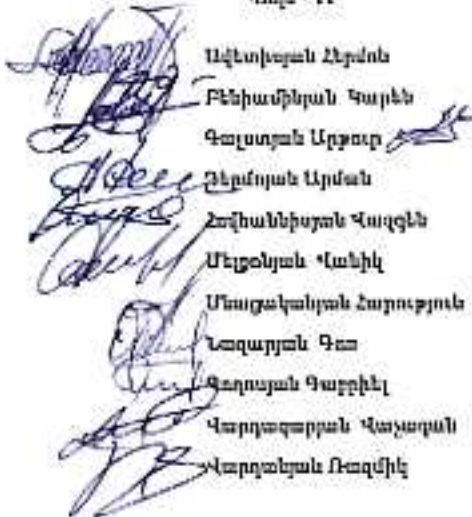 Ավետիսյան Հերմոն
Բենիամինյան Կարեն
Գալստյան Արթուր
Զերմոյան Արման
Հովհաննիսյան Վազգեն
Մելքոնյան Վանիկ
Մնացականյան Հարություն
Նազարյան Գոռ
Պողոսյան Գաբրիել
Վարդազարյան Վաչագան
Վարդանյան Ռազմիկ